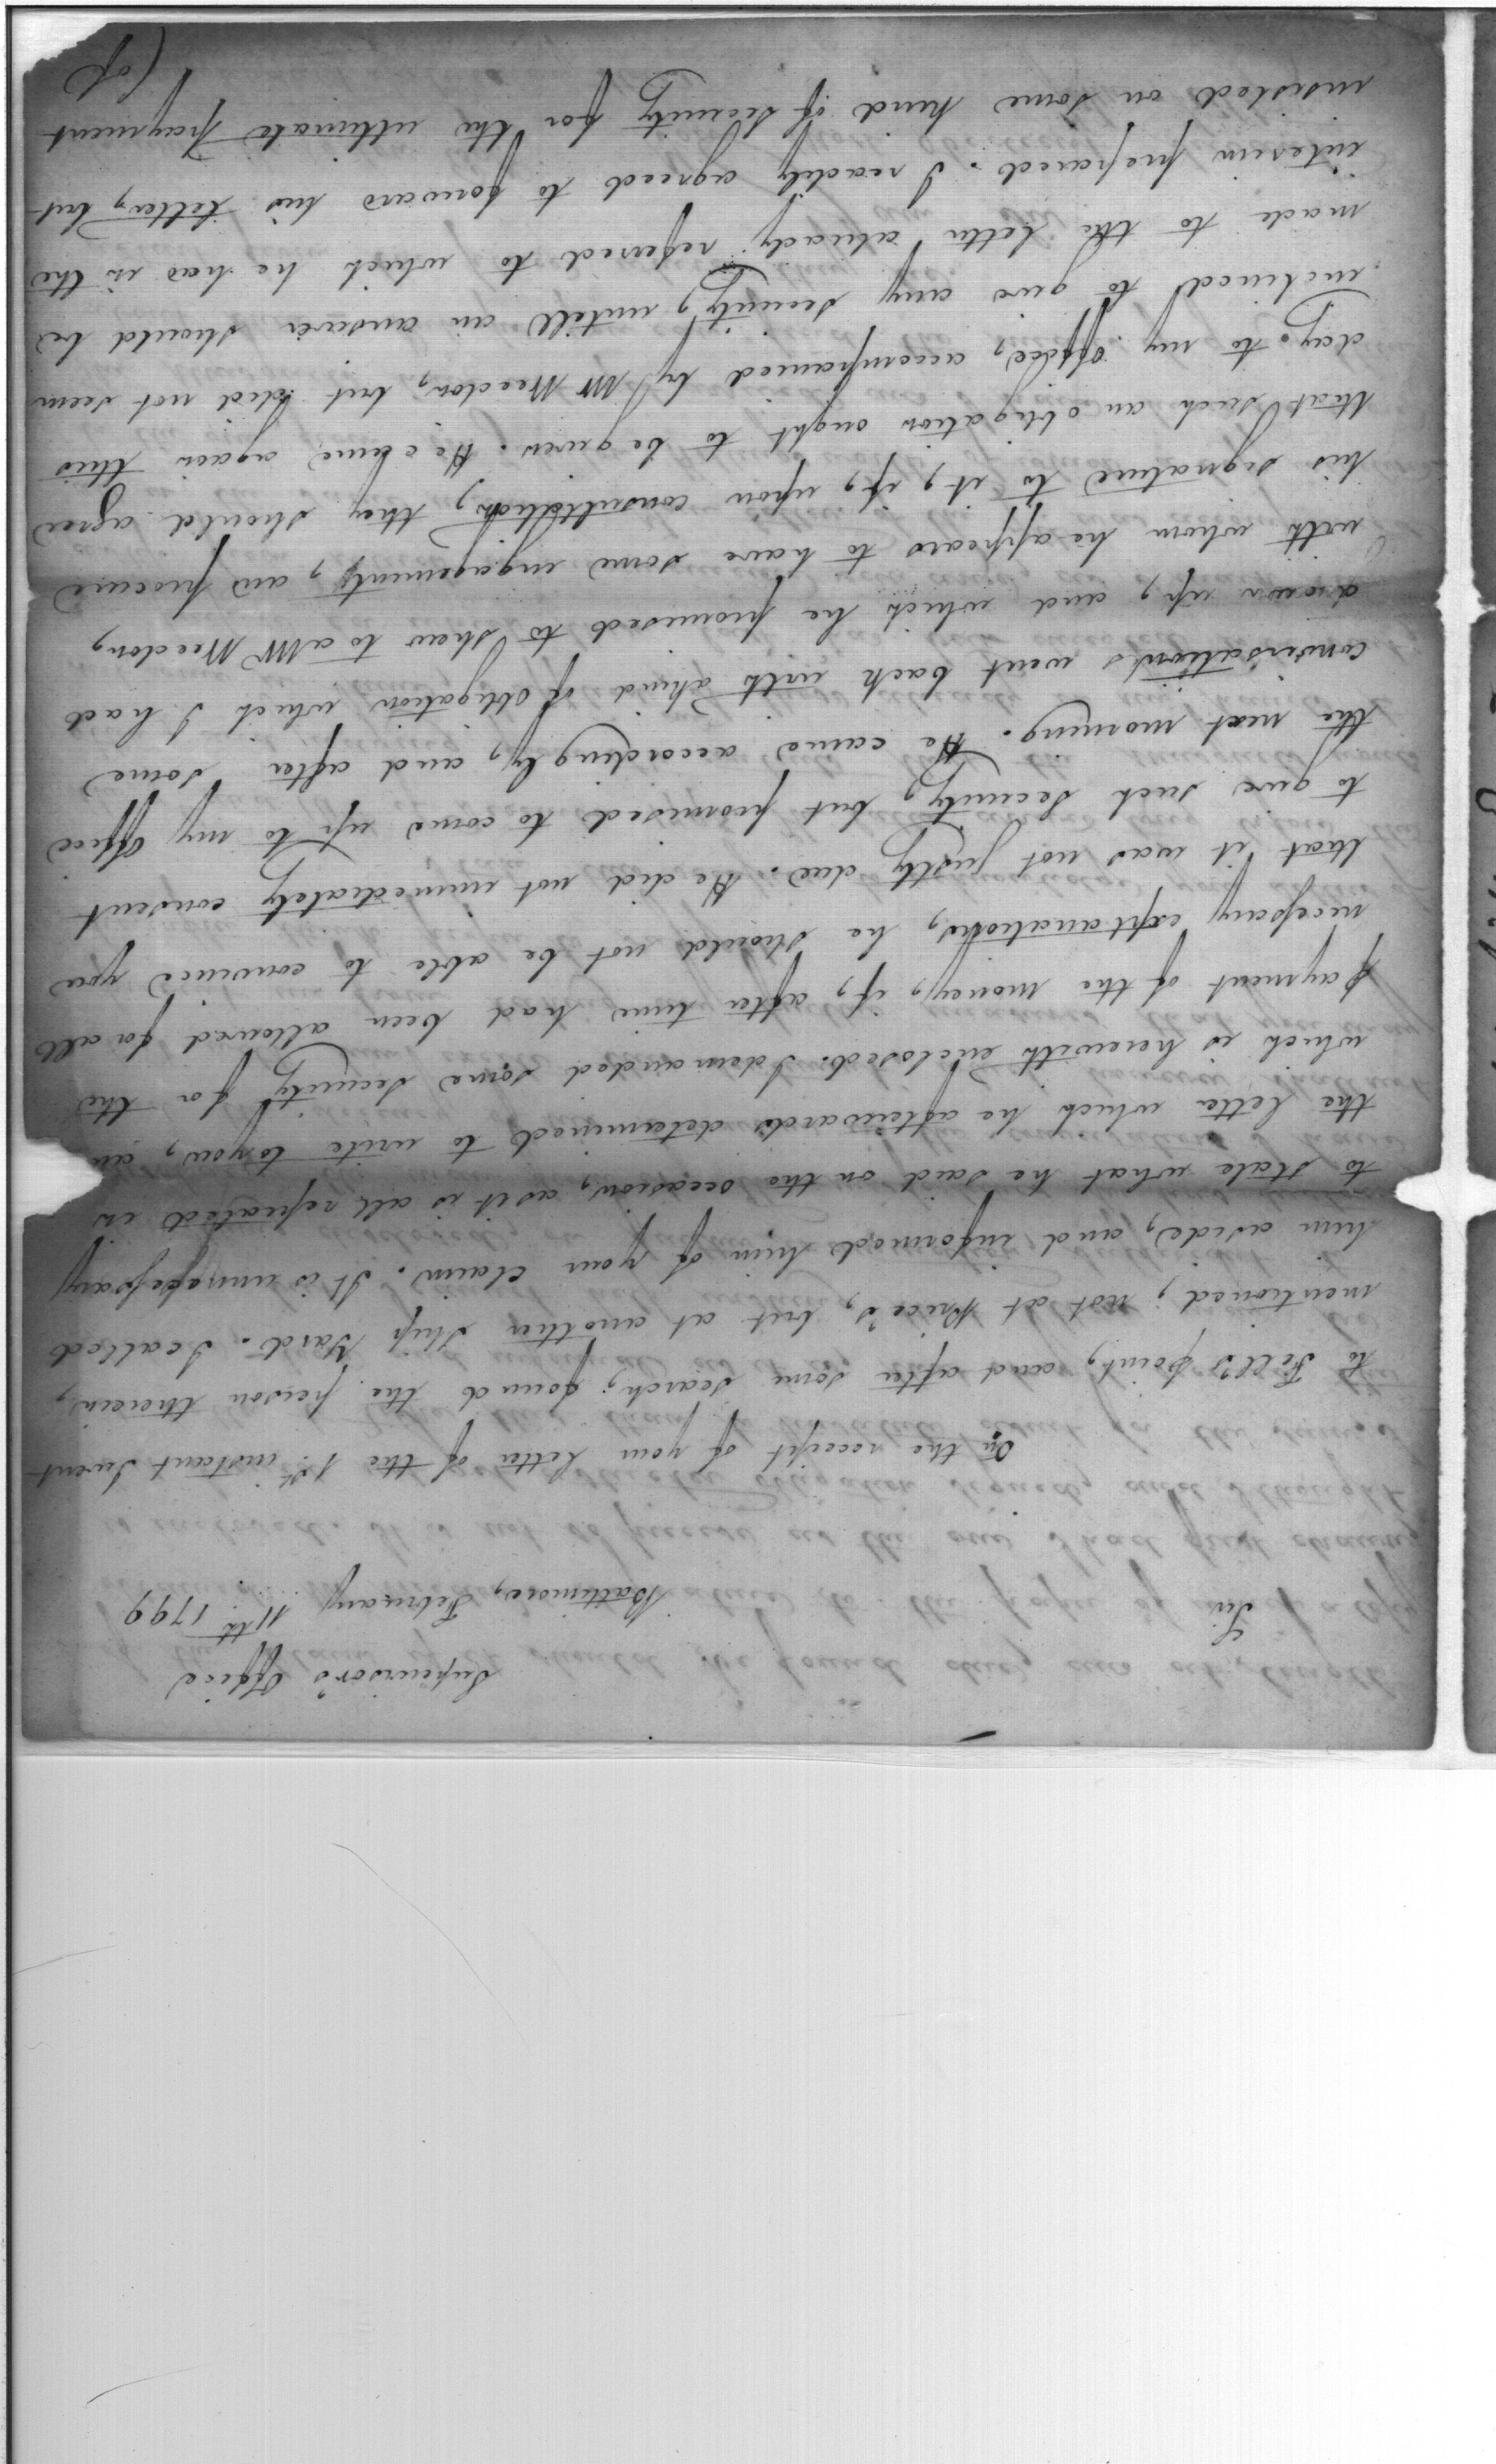 Supervisor's Office
Baltimore, February 11th 1799
Sir
On the receipt of your letter of the 1st instant I went
to Fell's point, and after some search, found the person therein,
mentioned; not at Price's, but at another Ship Yard. I called
him aside, and informed him of your claim. It is unnecessary
to state what he said on the occasion, as it is all repeated in
the letter which he afterwards determined to write to you, an
which is herewith enclosed. I demanded some security for the
payment of the money, if, after time had been allowed for all
necessary explanations, he should not be able to convince you
that it was not justly due. He did not immediately consent
to give such security, but promised to come up to my Office
the next morning. He came accordingly, and after some
conversations went back with a kind of obligation which I had
drawn up, and which he promised to shew to a Mr Weedon,
with whom he appears to have some engagements, and procure
his signature to it, if, upon consultation, they should agree
that such an obligation ought to be given. He came again this
day to my Office, accompanied by Mr Weedon, but did not seem
inclined to give any security, untill an answer should be
made to the letter already referred to which he had in the
interim prepared. I readily agreed to forward his letter, but
insisted on some kind of security for the ultimate payment
(of